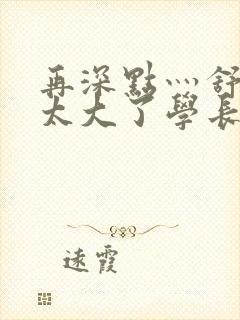 再深點灬舒
太大了學長
遠霞